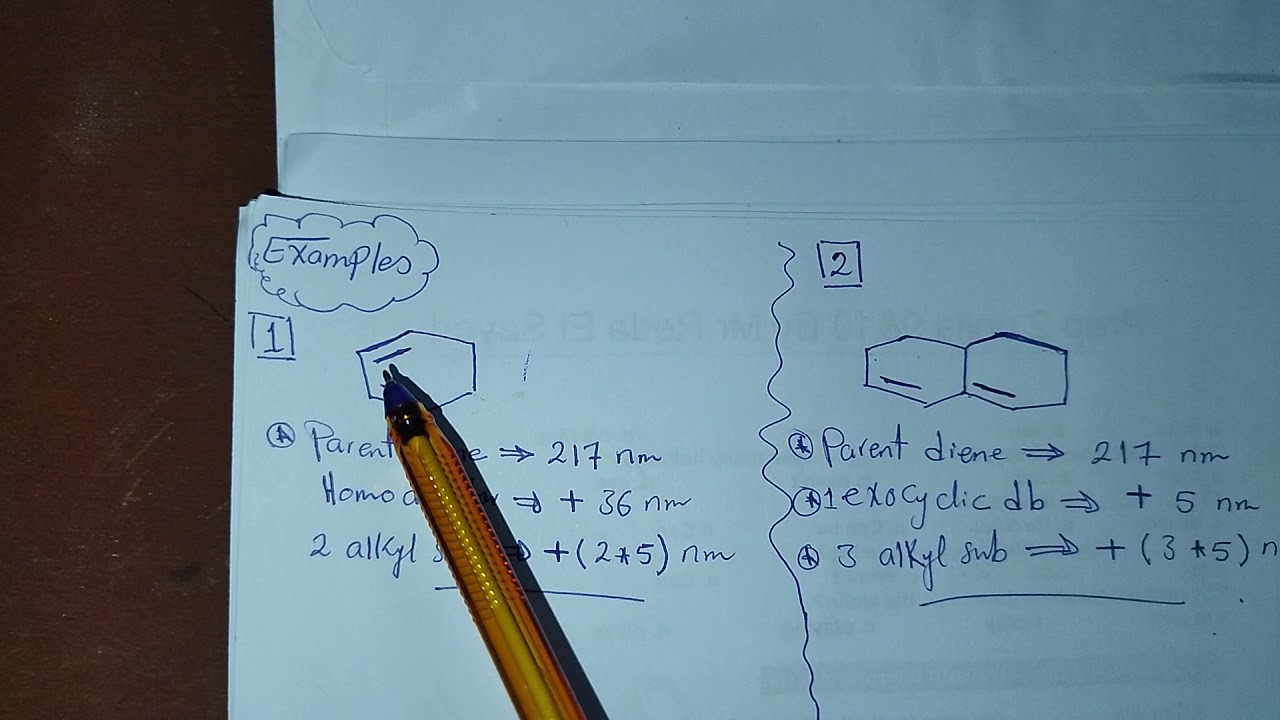 Examples
1
Parent ⇒ 217 nm
⇒ + 36 nm
2 alkyl ⇒ +(2*5) nm
2
Parent diene ⇒ 217 nm
1 exocyclic db ⇒ + 5 nm
3 alkyl sub ⇒ + (3*5) n